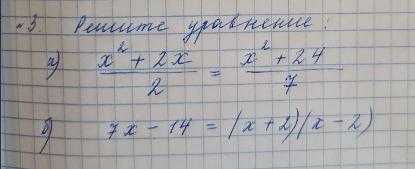 №3. Решите уравнение:
а) (x² + 2x)/2 = (x² + 24)/7
б) 7x - 14 = (x + 2)(x - 2)